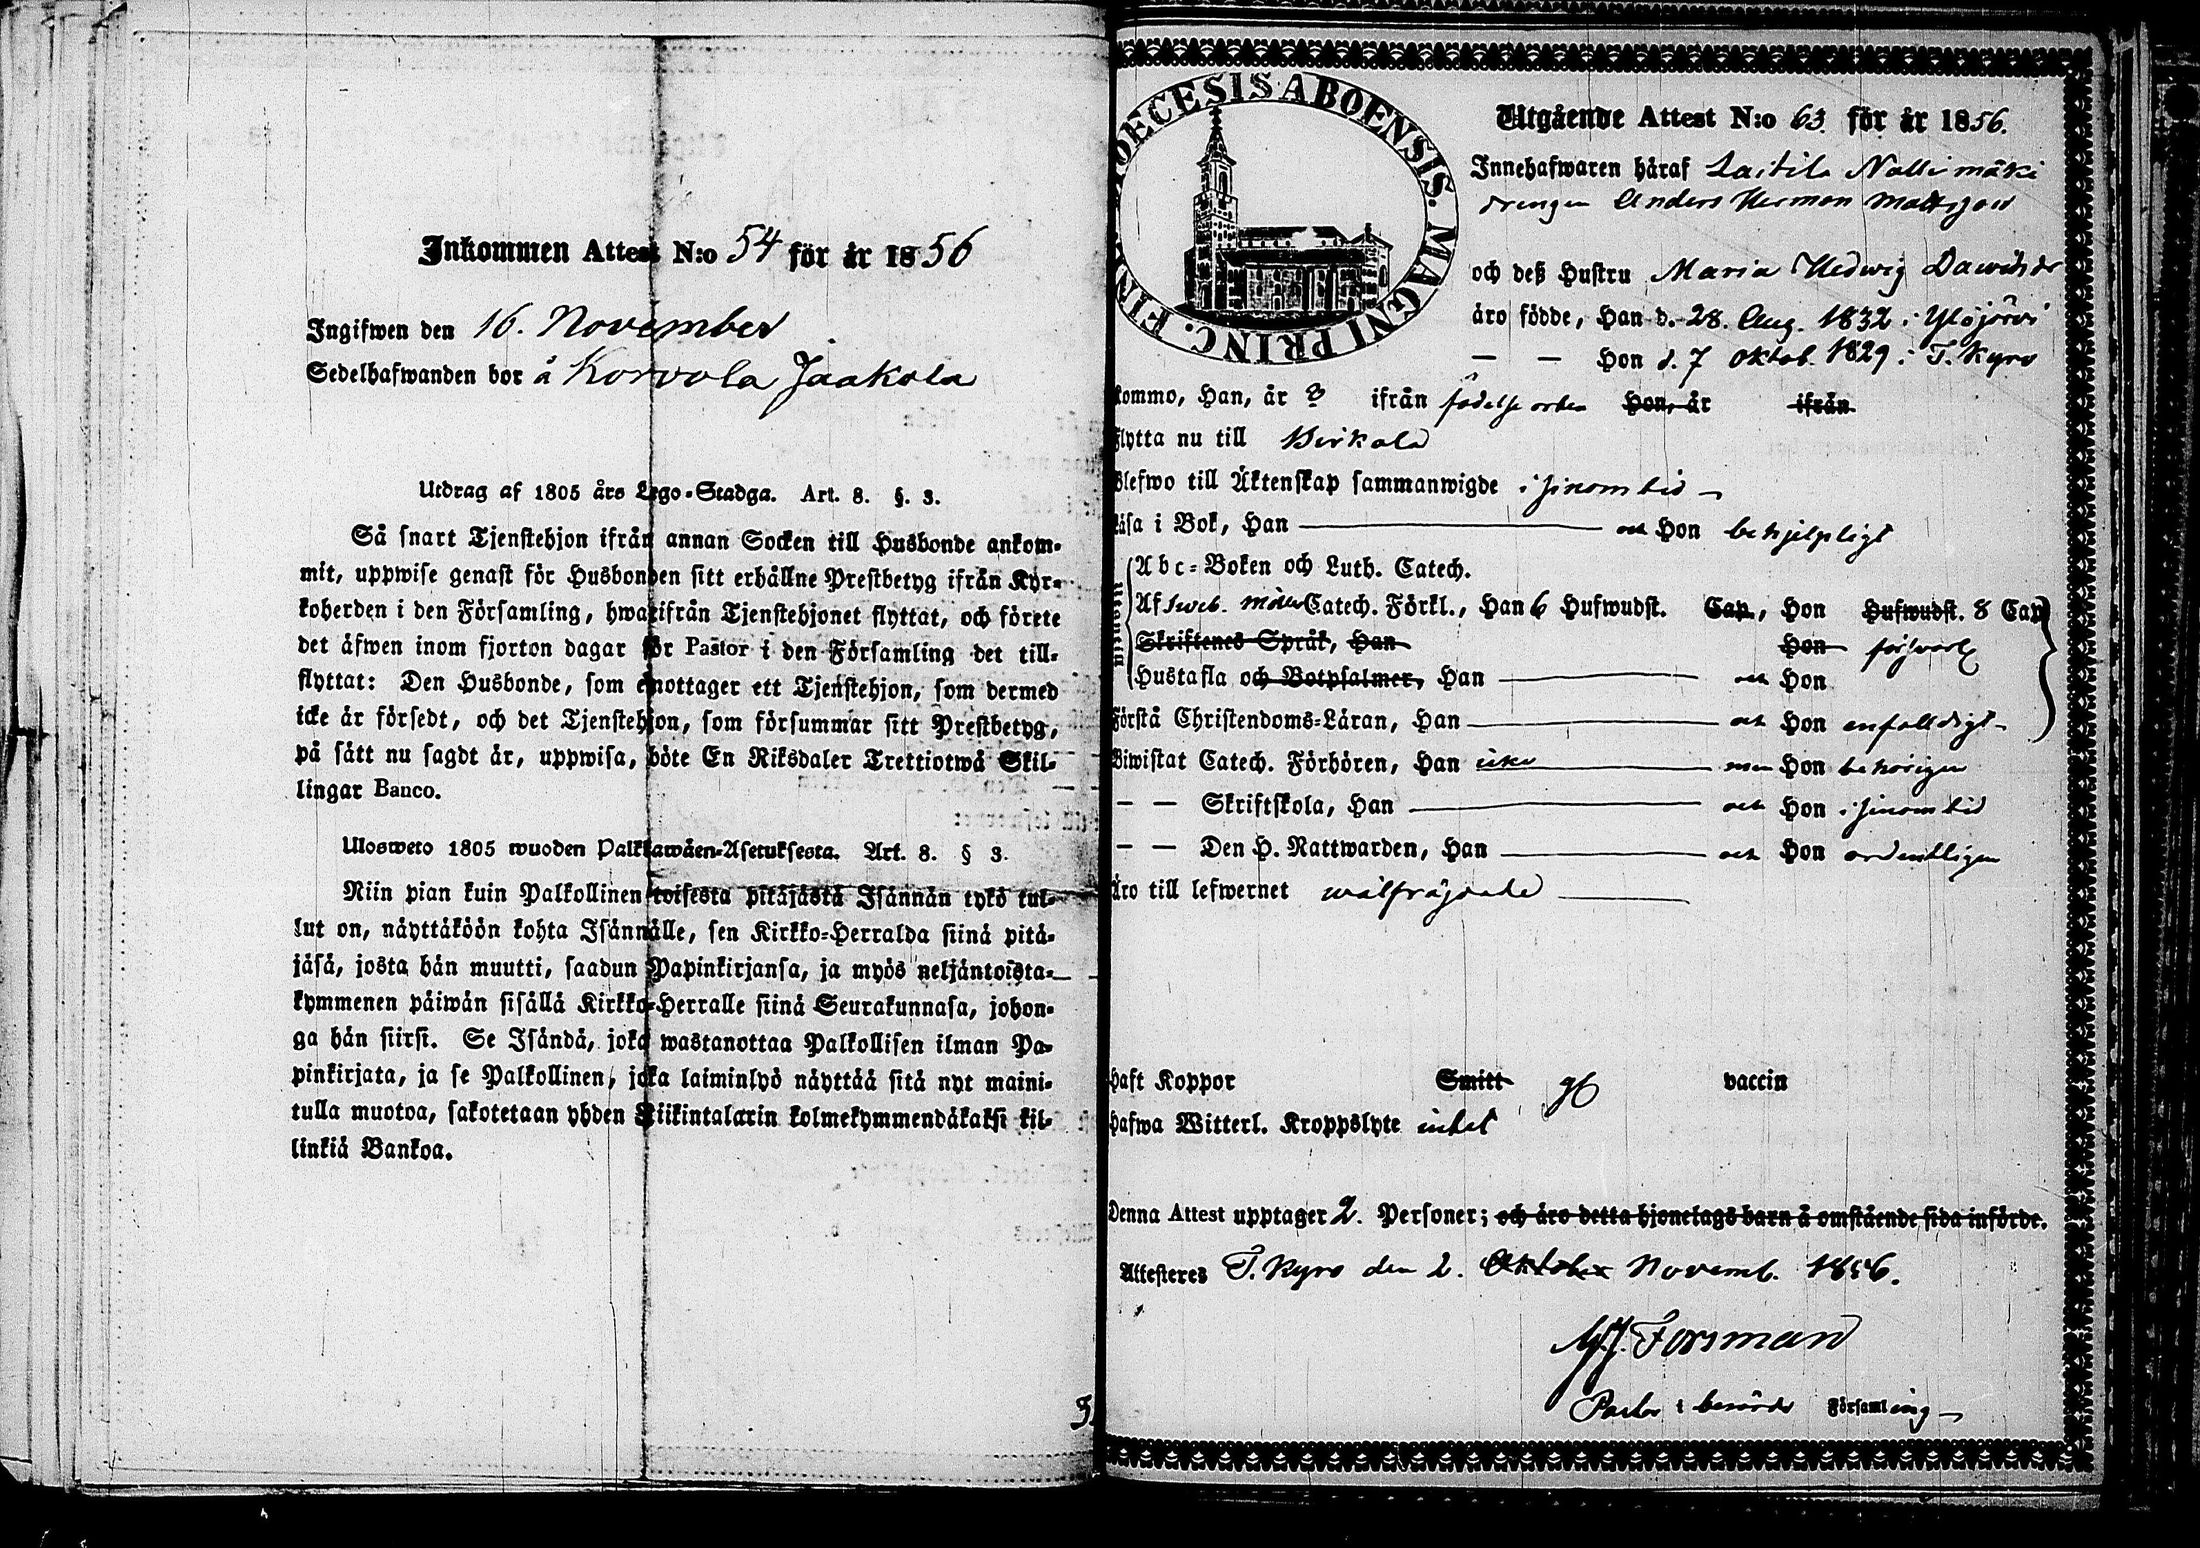 Inkommen Attest N:o 54 för år 1856
Ingifwen den 16. November
Sedelhafwanden bor å Korvola Jaakola
Utdrag af 1805 års Lego-Stadga. Art. 8. §. 3.
Så snart Tjenstehjon ifrån annan Socken till Husbonde ankom-
mit, uppwise genast för Husbonden sitt erhållne Prestbetyg ifrån Kyr-
koherden i den Församling, hwarifrån Tjenstehjonet flyttat, och förete
det äfwen inom fjorton dagar för Pastor i den Församling det till-
flyttat: Den Husbonde, som emottager ett Tjenstehjon, som dermed
icke är försedt, och det Tjenstehjon, som försummar sitt Prestbetyg,
på sätt nu sagdt är, uppwisa, böte En Riksdaler Trettiotwå Skil-
lingar Banco.
Ulosweto 1805 wuoden Palkkawäen-Asetuksesta. Art. 8. § 3.
Niin pian kuin Palkollinen toisesta pitäjästä Isännän tykö tul-
lut on, näyttäköön kohta Isännälle, sen Kirkko-Herralda siinä pitä-
jäsä, josta hän muutti, saadun Papinkirjansa, ja myös neljäntoista-
kymmenen päiwän sisällä Kirkko-Herralle siinä Seurakunnasa, johon-
ga hän siirsi. Se Isändä, joka wastanottaa Palkollisen ilman Pa-
pinkirjata, ja se Palkollinen, joka laiminlyö näyttää sitä nyt maini-
tulla muotoa, sakotetaan yhden Riikintalarin kolmekymmendäkaksi kil-
linkiä Bankoa.
DIOECESIS ABOENSIS. MAGNI PRINC. FIN
Utgående Attest N:o 63. för år 1856.
Innehafwaren häraf Laitila Nallimäki
drengen Anders Herman Mattsson
och deß Hustru Maria Hedwig Davidsdr
äro födde, Han d. 28. Aug. 1832 i Ylöjärvi
— — Hon d. 7 Oktob. 1829 i T. Kyro
kommo, Han, år 3 ifrån födelse orten Hon, år ifrån
flytta nu till Birkala
Blefwo till Äktenskap sammanwigde i sinom tid
Läsa i Bok, Han och Hon behjelpligt
Abc-Boken och Luth. Catech.
Af Sveb. Catech. Förkl., Han 6 Hufwudst. Cap, Hon Hufwudst. 8 Cap
Skriftenes Språk, Han Hon försvarl
Hustafla och Botpsalmer, Han och Hon
Förstå Christendoms-Läran, Han och Hon enfaldigt
Biwistat Catech. Förhören, Han icke men Hon behörigen
— — Skriftskola, Han och Hon i sinom tid
— — Den H. Nattwarden, Han och Hon ordentligen
Äro till lefwernet wälfrägdade
Haft Koppor Smitt vaccin
Hafwa Witterl. Kroppslyte intet
Denna Attest upptager 2. Personer; och äro detta hjonelags barn å omstående sida införde.
Attesteres T. Kyro den 2. Oktober Novemb. 1856.
Forsman
Pastor i berörde Församling